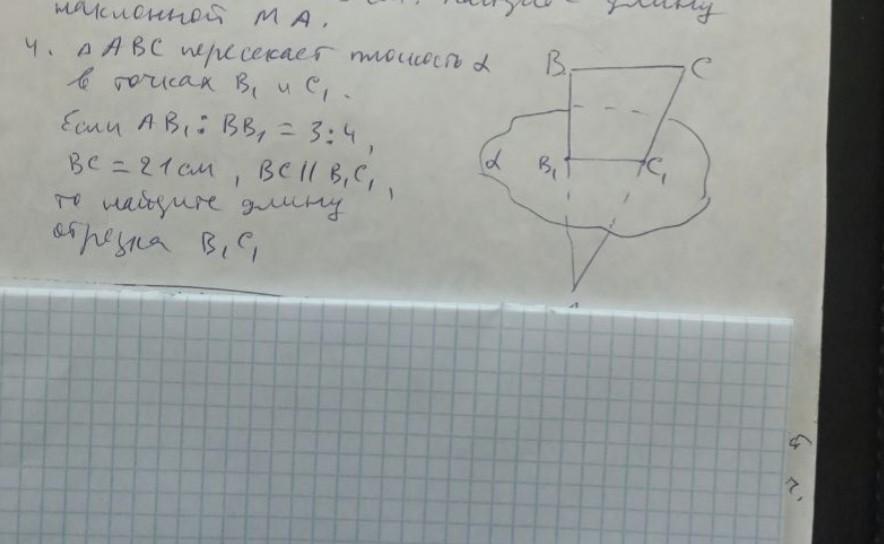 наклонной МА.
4. △ABC пересекает плоскость α
в точках B₁ и C₁.
Если AB₁:BB₁ = 3:4,
BC = 21 см, BC || B₁C₁,
то найдите длину
отрезка B₁C₁
B C
α B₁ C₁